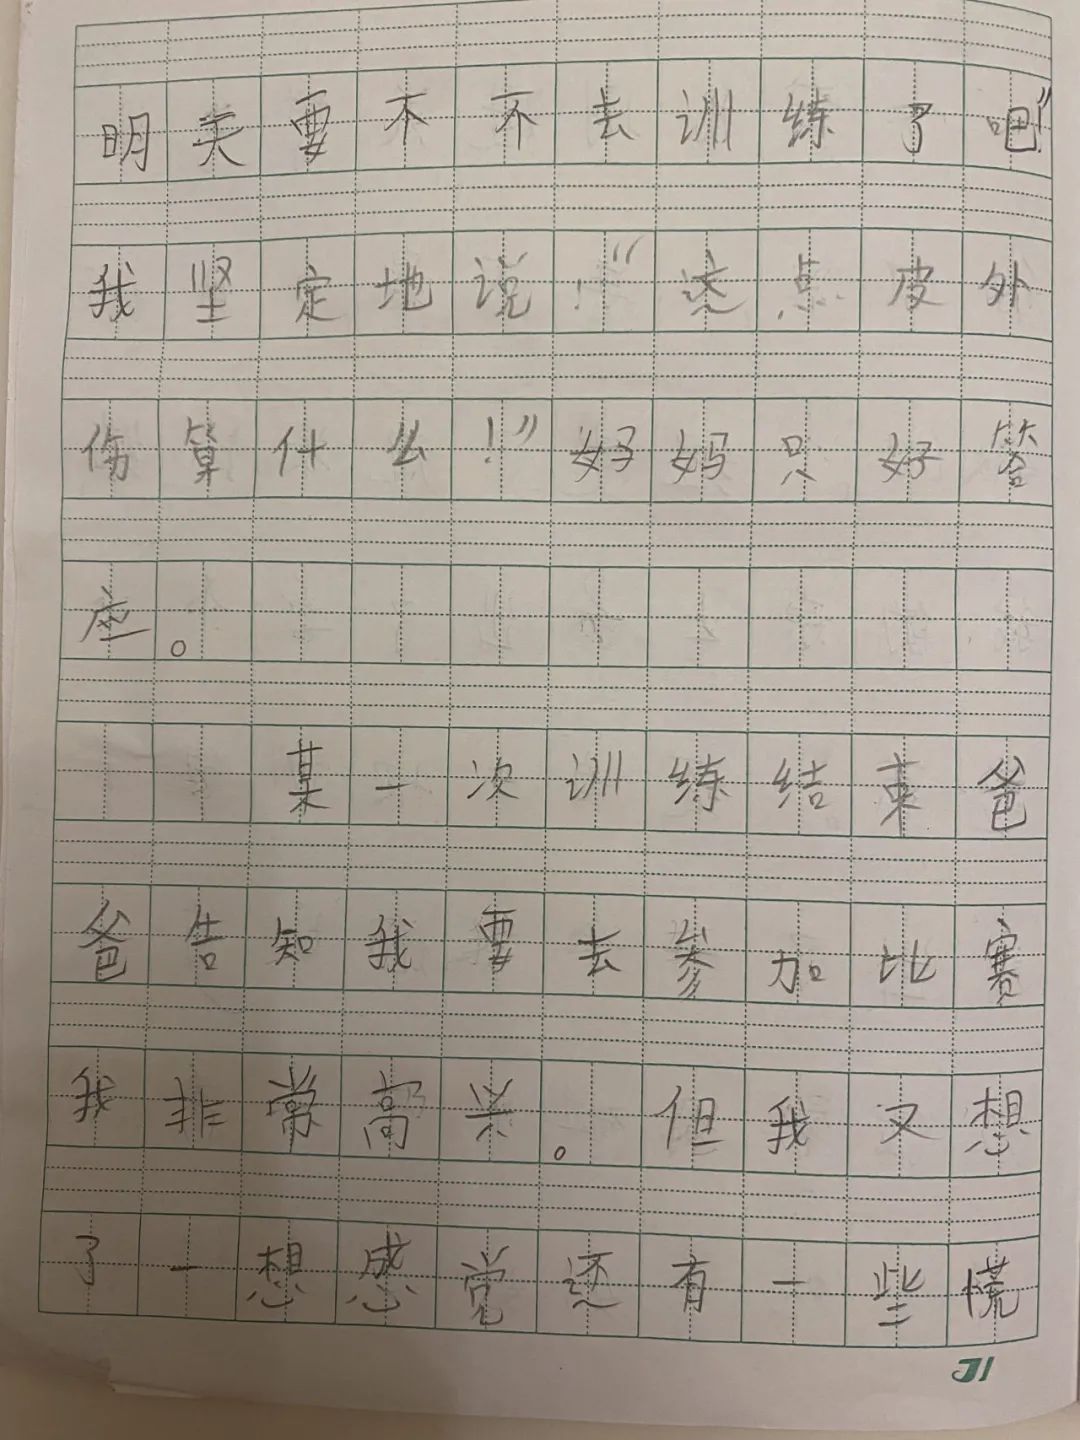 明天要不不去训练了吧”
我坚定地说！“这点皮外
伤算什么！”妈妈只好答
应。
某一次训练结束爸
爸告知我要去参加比赛
我非常高兴。但我又想
了一想感觉还有一些慌
31